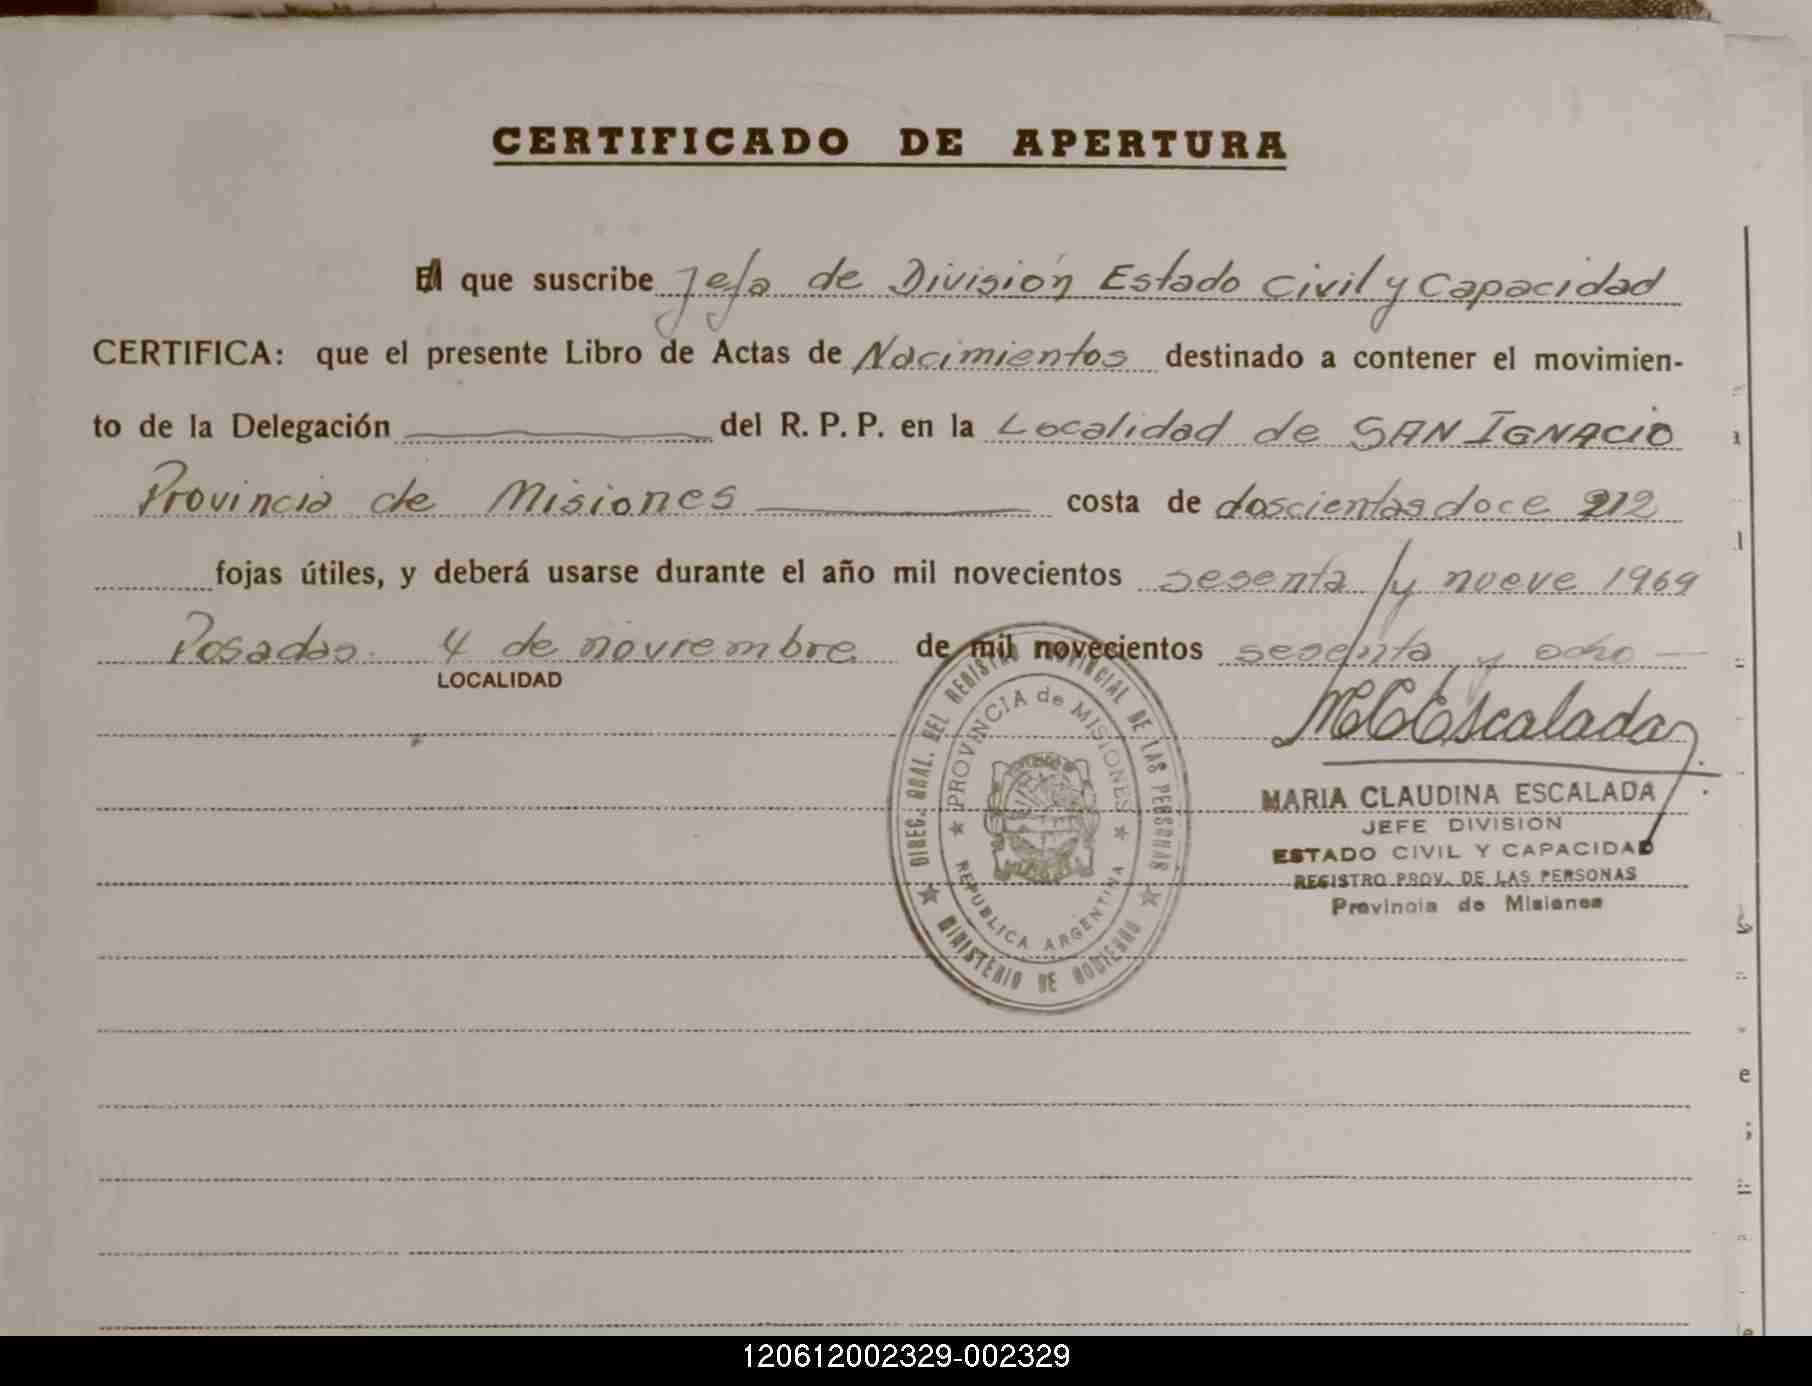 CERTIFICADO DE APERTURA
El que suscribe Jefa de División Estado Civil y Capacidad
CERTIFICA: que el presente Libro de Actas de Nacimientos destinado a contener el movimien-
to de la Delegación del R. P. P. en la Localidad de SAN IGNACIO
Provincia de Misiones costa de doscientas doce 212
fojas útiles, y deberá usarse durante el año mil novecientos sesenta y nueve 1969
Posadas 4 de noviembre de mil novecientos sesenta y ocho
LOCALIDAD
MCEscalada
MARIA CLAUDINA ESCALADA
JEFE DIVISION
ESTADO CIVIL Y CAPACIDAD
REGISTRO PROV. DE LAS PERSONAS
Provincia de Misiones
DIREC. GRAL. DEL REGISTRO PROVINCIAL DE LAS PERSONAS
PROVINCIA de MISIONES
REPUBLICA ARGENTINA
MINISTERIO DE GOBIERNO
120612002329-002329